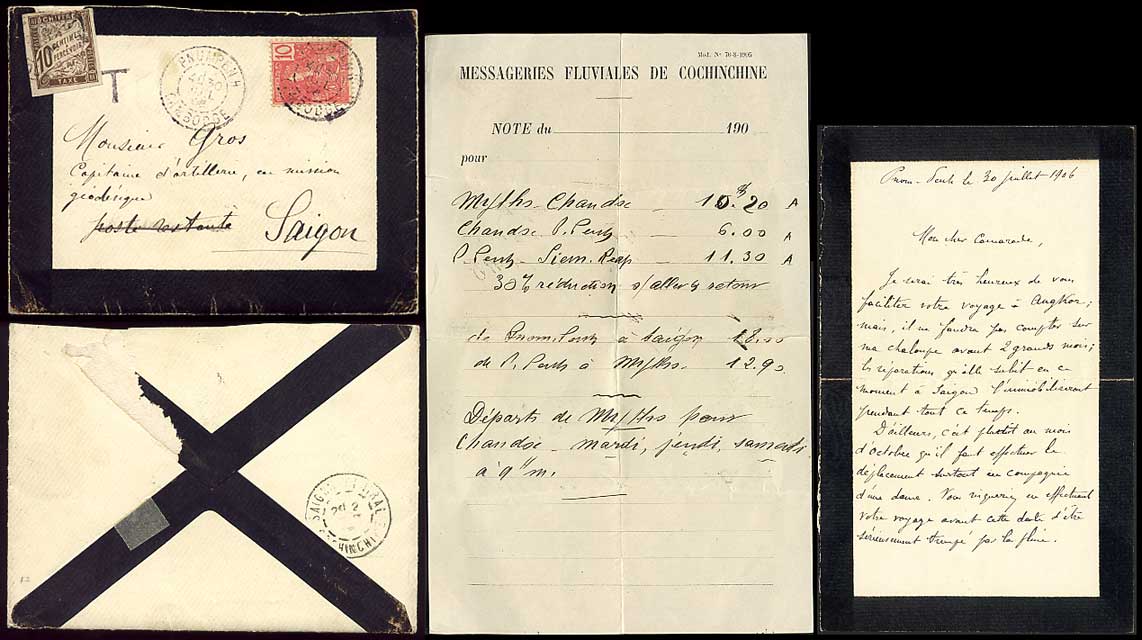 CHIFFRE
10
CENTIMES
A PERCEVOIR
TAXE
T
PNUMPENH
CAMBODGE
10
Monsieur Gros
Capitaine d'artillerie, en mission
géodésique
poste restante
Saigon
SAIGON CENTRAL
COCHINCHINE
Mod. Nº 70-8-1905
MESSAGERIES FLUVIALES DE COCHINCHINE
NOTE du 190
pour
Mytho-Chaudoc 10.20 A
Chaudoc P. Penh 6.00 A
P. Penh - Siem-Reap 11.30 A
30% réduction s/ aller & retour
de Pnom-Penh à Saigon 18.00
de P. Penh à Mytho. 12.90
Départs de Mytho pour
Chaudoc - mardi, jeudi, samedi
à 9h m.
Pnom-Penh le 30 juillet 1906
Mon cher Camarade,
Je serai très heureux de vous
faciliter votre voyage à Angkor;
mais, il ne faudra pas compter sur
ma chaloupe avant 2 grands mois;
les réparations qu'elle subit en ce
moment à Saigon l'immobiliseront
pendant tout ce temps.
D'ailleurs, c'est plutôt au mois
d'octobre qu'il faut effectuer le
déplacement surtout en compagnie
d'une dame. Vous risqueriez en effectuant
votre voyage avant cette date d'être
sérieusement trempé par la pluie.